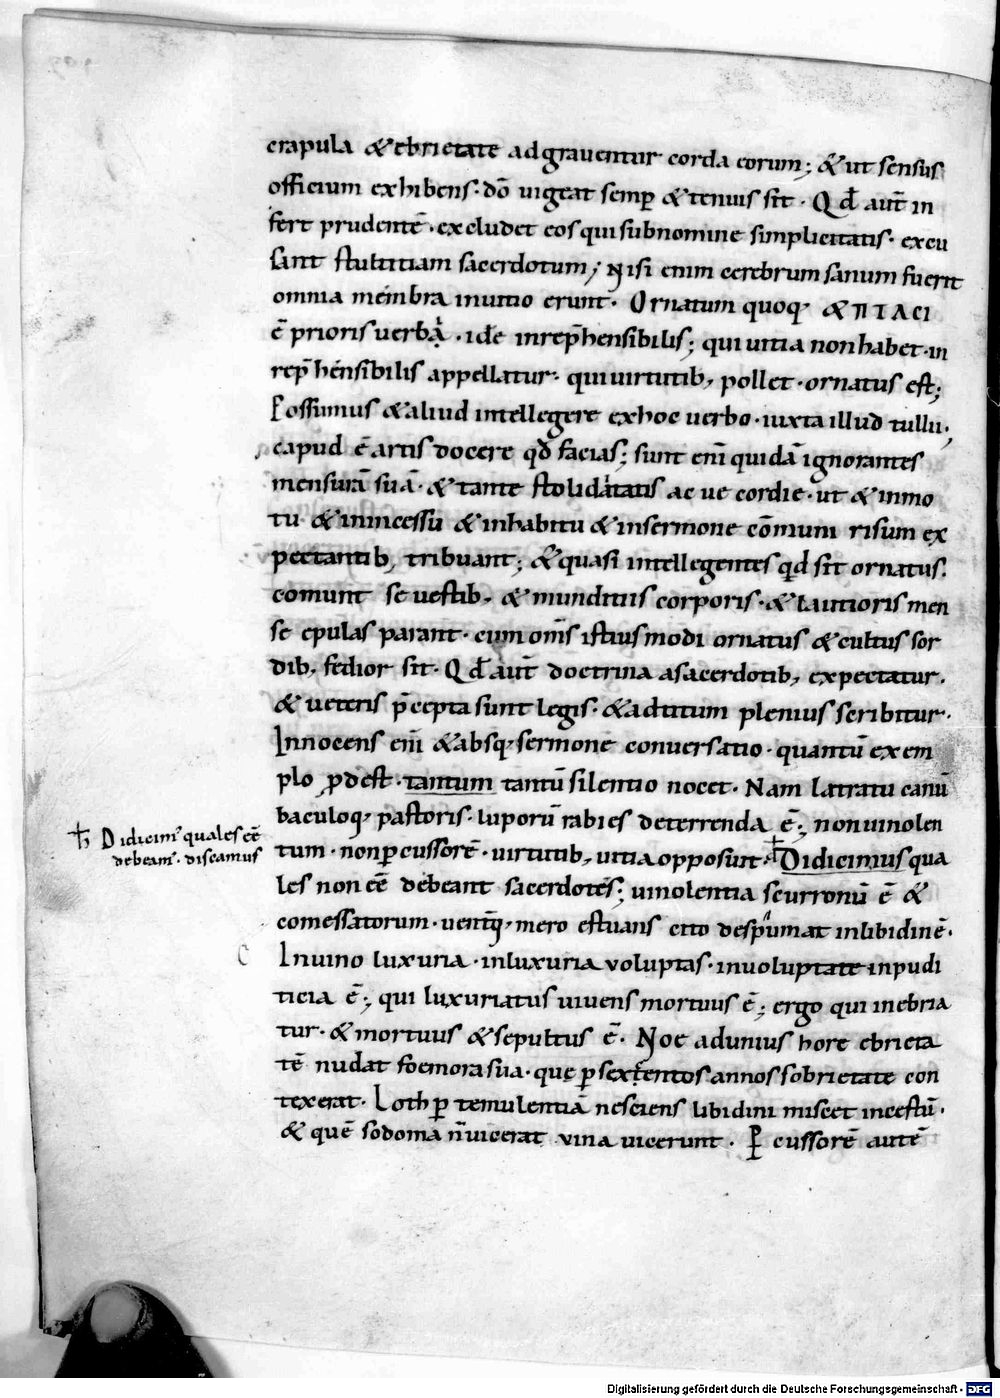 crapula & ebrietate adgrauentur corda eorum; & ut sensus
officium exhibens· dō uigeat semp̄ & tenuis sit· Qd̄ aut̄ in
fert prudentē· excludet eos qui subnomine simplicitatis· excu
sant stultitiam sacerdotum; Nisi enim cerebrum sanum fuerit
omnia membra inuitio erunt· Ornatum quoq;
ē prioris uerbi· idē inrep̄hensibilis; qui uitia non habet· in
rep̄hensibilis appellatur· qui uirtutib; pollet· ornatus est;
Possumus & aliud intellegere exhoc uerbo· iuxta illud tullii·
capud ē artis docere qd̄ facias; sunt eni quidā ignorantes
mensurā suā· & tante stoliditatis ac ue cordie· ut & inmo
tu & inincessu & inhabitu & insermone cōmuni risum ex
pectantib; tribuant; & quasi intellegentes qd̄ sit ornatus·
comunt se uestib; & munditiis corporis· & lautioris men
se epulas parant· cum om̄s istiusmodi ornatus & cultus sor
dib; fedior sit· Qd̄ aut̄ doctrina asacerdotib; expectatur·
& ueteris p̄cepta sunt legis· & adtitum plenius scribitur·
Innocens eni & absq; sermone conuersatio· quantū exem
plo p̱dest· tantum tantū silentio nocet· Nam latratu canū
baculoq; pastoris· luporū rabies deterrenda ē; nonuinolen
tum· nonp̱cussorē· uirtutib; uitia opposuit· Didicimus qua
ħ Didicim; quales eē
debeam;· discamus
les non eē debeant sacerdotes; uinolentia scurronū ē &
comessatorum· uentq; mero estuans cito despumat inlibidinē·
Inuino luxuria· inluxuria voluptas· inuoluptate inpudi
ticia ē; qui luxuriatus uiuens mortuus ē; ergo qui inebria
tur· & mortuus & sepultus ē· Noe adunius hore ebrieta
tē nudat foemora sua· quę p̱ sexcentos annos sobrietate con
texerat· Loth p̱ temulentiā nesciens libidini miscet incestū·
& quē sodoma n̄ uicerat vina uicerunt· P̱cussorē autē
Digitalisierung gefördert durch die Deutsche Forschungsgemeinschaft - DFG